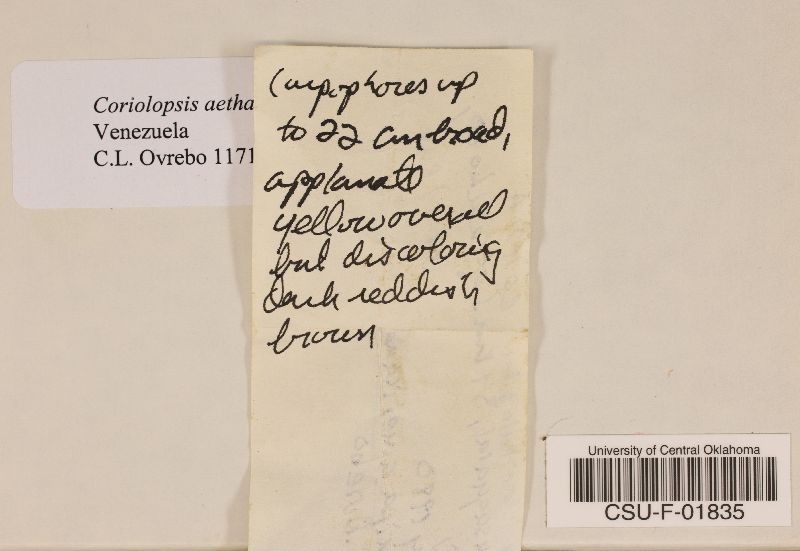 Coriolopsis aetha
Venezuela
C.L. Ovrebo 1171
Carpophores up
to 22 cm broad,
applanate
yellow overall
but discoloring
dark reddish
brown
University of Central Oklahoma
CSU-F-01835